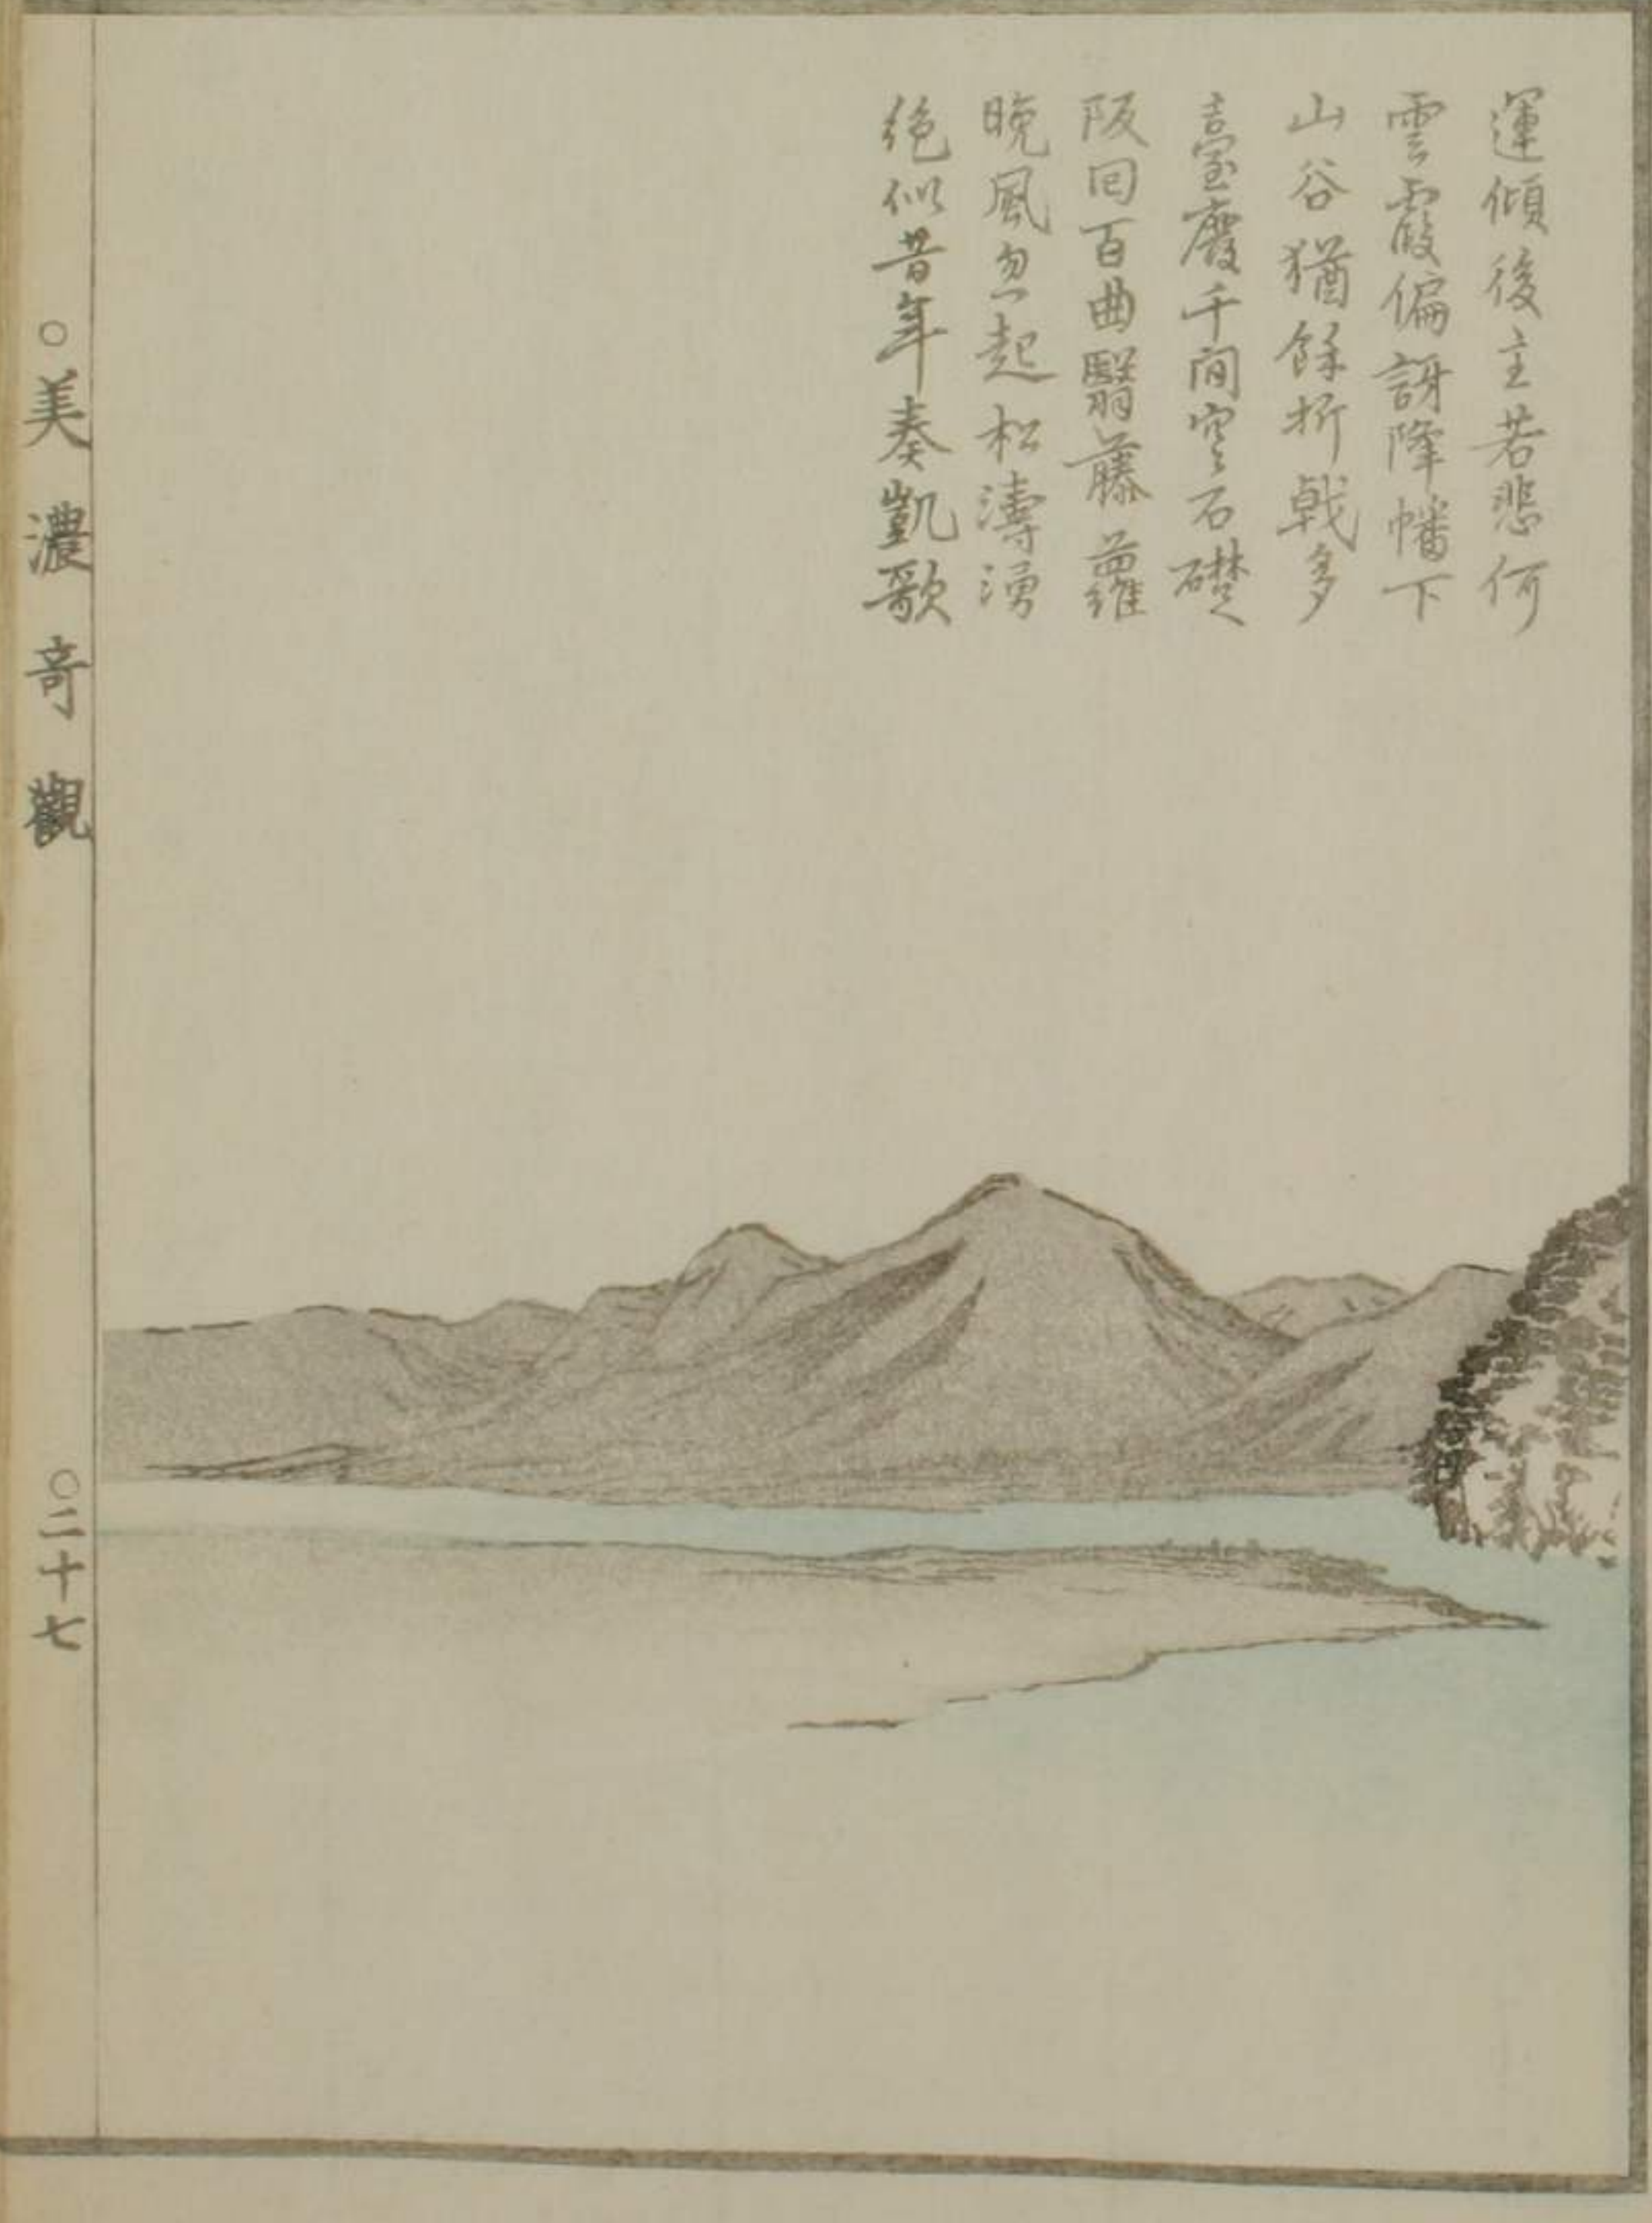 運傾後主若悲何
雲霞偏訝降幡下
山谷猶餘折戟多
臺廢千間空石礎
阪回百曲翳藤蘿
晩風忽起松濤湧
絶似昔年奏凱歌
○美濃奇觀
○二十七